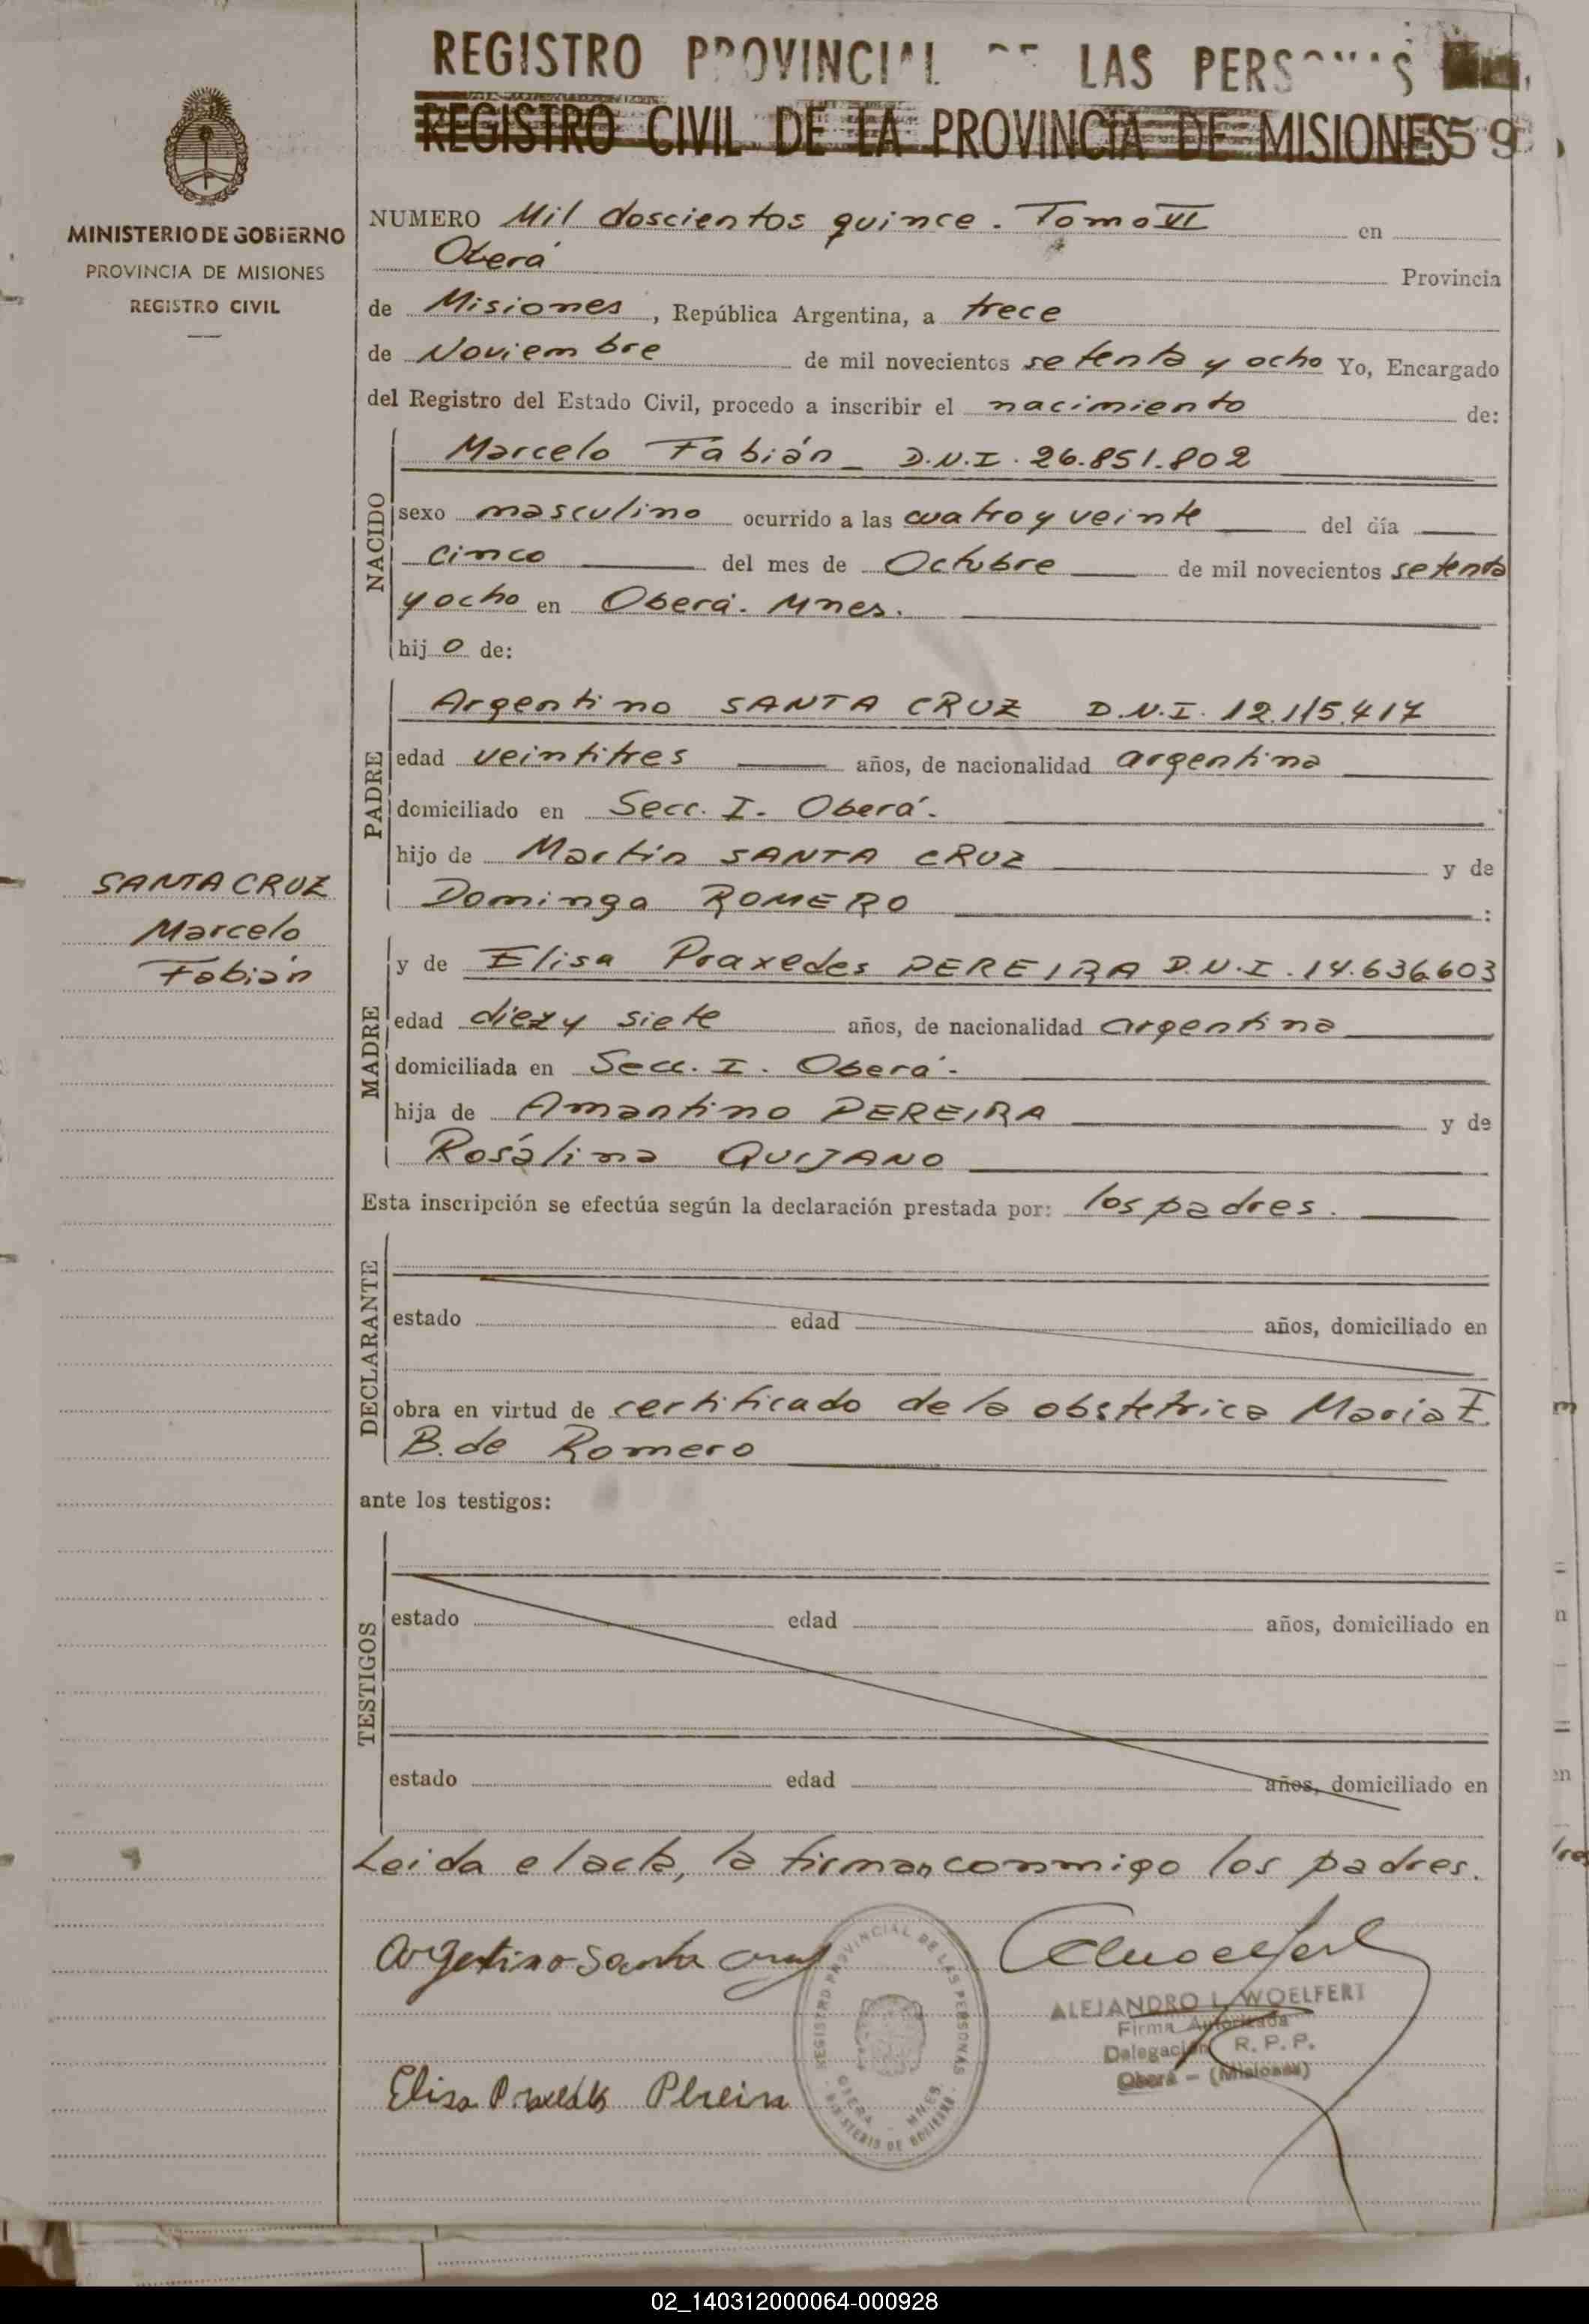 REGISTRO PROVINCIAL DE LAS PERSONAS
REGISTRO CIVIL DE LA PROVINCIA DE MISIONES 59
MINISTERIO DE GOBIERNO
PROVINCIA DE MISIONES
REGISTRO CIVIL
NUMERO Mil doscientos quince. Tomo VI en
Oberá Provincia
de Misiones, República Argentina, a trece
de Noviembre de mil novecientos setenta y ocho Yo, Encargado
del Registro del Estado Civil, procedo a inscribir el nacimiento de:
NACIDO
Marcelo Fabián D.N.I. 26.851.802
sexo masculino ocurrido a las cuatro y veinte del día
cinco del mes de Octubre de mil novecientos setenta
y ocho en Oberá. Mnes.
hijo de:
PADRE
Argentino SANTA CRUZ D.N.I. 12.115.417
edad veintitres años, de nacionalidad argentina
domiciliado en Secc. I. Oberá.
hijo de Martín SANTA CRUZ y de
Dominga ROMERO :
SANTA CRUZ
Marcelo
Fabián
MADRE
y de Elisa Praxedes PEREIRA D.N.I. 14.636.603
edad diez y siete años, de nacionalidad argentina
domiciliada en Secc. I. Oberá.
hija de Amantino PEREIRA y de
Rosalina QUIJANO
Esta inscripción se efectúa según la declaración prestada por: los padres.
DECLARANTE
estado edad años, domiciliado en
obra en virtud de certificado de la obstetrica Maria E.
B. de Romero
ante los testigos:
TESTIGOS
estado edad años, domiciliado en
estado edad años, domiciliado en
Leida el acta, la firman conmigo los padres.
Argentino Santa Cruz
ALEJANDRO L. WOELFERT
Firma Autorizada
Delegación R. P. P.
Oberá - (Misiones)
Elisa Praxedes Pereira
REGISTRO PROVINCIAL DE LAS PERSONAS
OBERA MNES.
MINISTERIO DE GOBIERNO
02_140312000064-000928